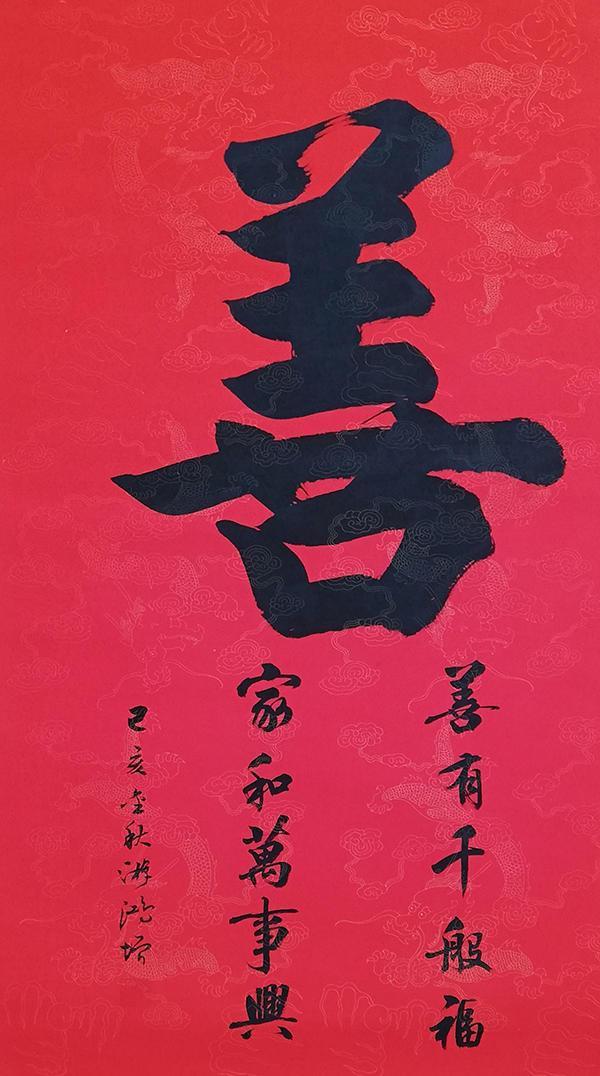 善
善有千般福
家和萬事興
己亥金秋游鴻增